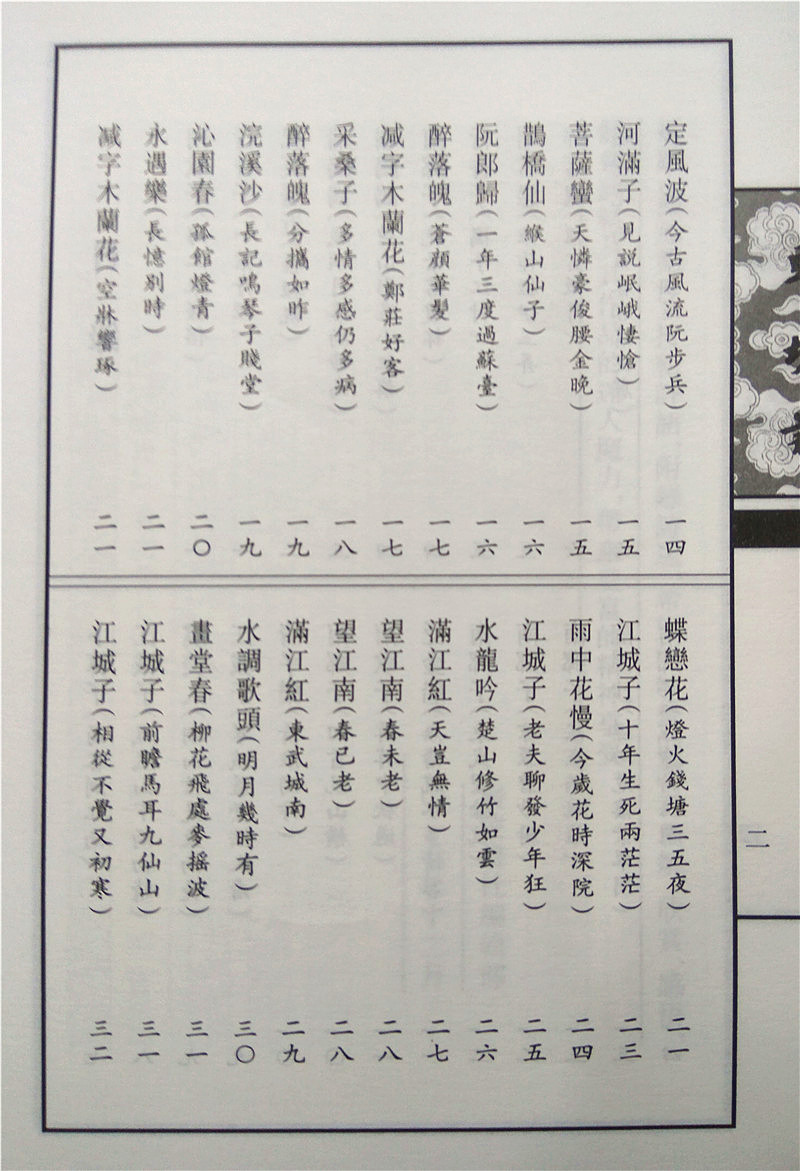 定風波（今古風流阮步兵） 一四
河滿子（見説岷峨悽愴） 一五
菩薩蠻（天憐豪俊腰金晚） 一五
鵲橋仙（緱山仙子） 一六
阮郎歸（一年三度過蘇臺） 一六
醉落魄（蒼顔華髮） 一七
减字木蘭花（鄭莊好客） 一七
采桑子（多情多感仍多病） 一八
醉落魄（分攜如昨） 一九
浣溪沙（長記鳴琴子賤堂） 一九
沁園春（孤館燈青） 二〇
永遇樂（長憶别時） 二一
减字木蘭花（空牀響琢） 二一
蝶戀花（燈火錢塘三五夜） 二一
江城子（十年生死兩茫茫） 二三
雨中花慢（今歲花時深院） 二四
江城子（老夫聊發少年狂） 二五
水龍吟（楚山修竹如雲） 二六
滿江紅（天豈無情） 二七
望江南（春未老） 二八
望江南（春已老） 二八
滿江紅（東武城南） 二九
水調歌頭（明月幾時有） 三〇
畫堂春（柳花飛處麥摇波） 三一
江城子（前瞻馬耳九仙山） 三一
江城子（相從不覺又初寒） 三二
二